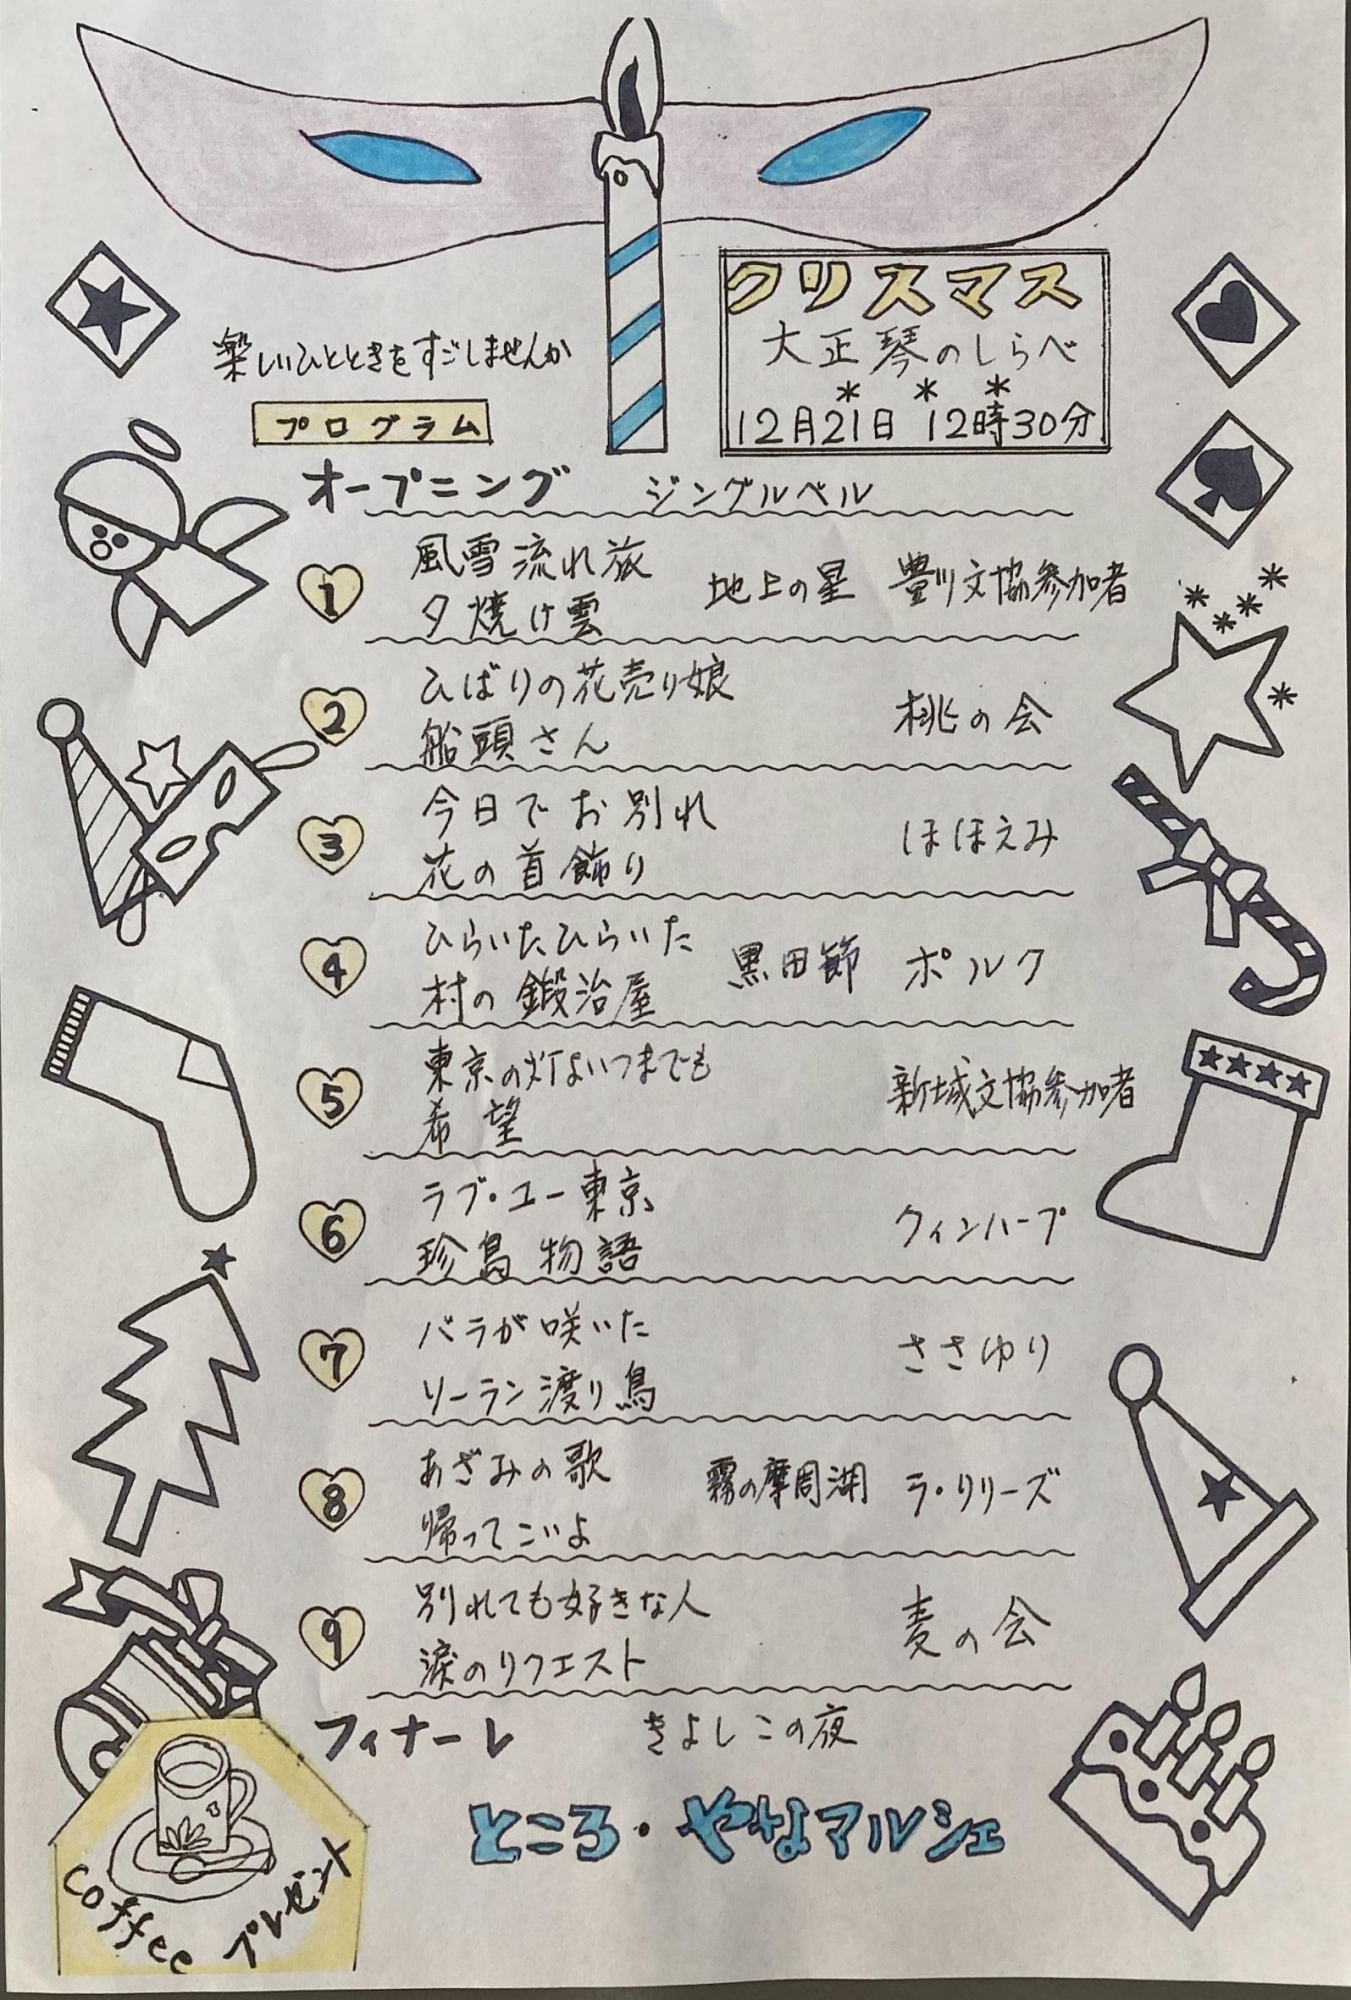 クリスマス
大正琴のしらべ
* * *
12月21日 12時30分
楽しいひとときをすごしませんか
プログラム
オープニング ジングルベル
1 風雪流れ旅 地上の星 豊川文協参加者
夕焼け雲
2 ひばりの花売り娘 桃の会
船頭さん
3 今日でお別れ ほほえみ
花の首飾り
4 ひらいたひらいた 黒田節 ポルク
村の鍛治屋
5 東京の灯よいつまでも 新城文協参加者
希望
6 ラブ・ユー東京 クィンハープ
珍島物語
7 バラが咲いた ささゆり
ソーラン渡り鳥
8 あざみの歌 霧の摩周湖 ラ・リリーズ
帰ってこいよ
9 別れても好きな人 麦の会
涙のリクエスト
フィナーレ きよしこの夜
ところ・やなマルシェ
coffee プレゼント